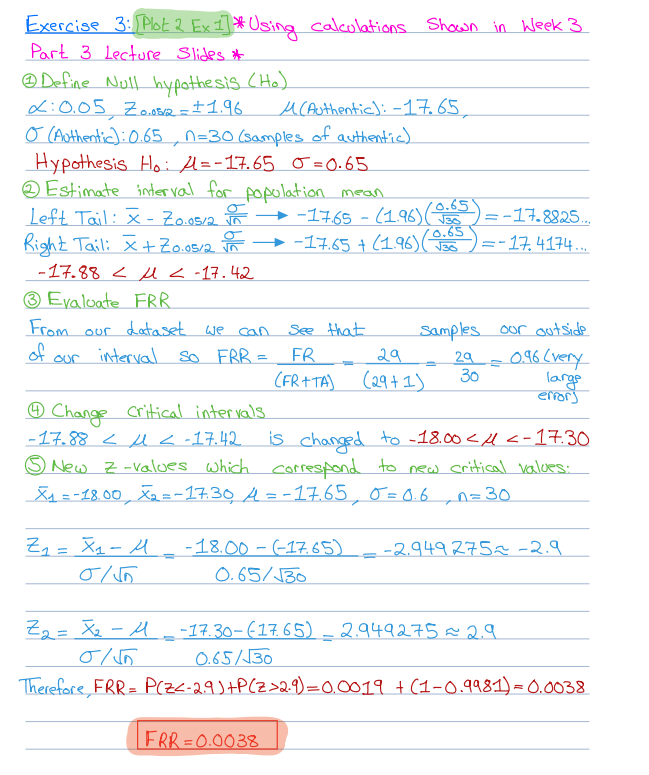 Exercise 3: [Plot 2 Ex 1] * Using calculations Shown in Week 3
Part 3 Lecture Slides *
① Define Null hypothesis (H₀)
α: 0.05, Z₀.₀₅/₂ = ±1.96 μ(Authentic): -17.65,
σ (Authentic): 0.65, n=30 (samples of authentic)
Hypothesis H₀: μ = -17.65 σ = 0.65
② Estimate interval for population mean
Left Tail: x̄ - Z₀.₀₅/₂ σ/√n → -17.65 - (1.96)(0.65/√30) = -17.8825...
Right Tail: x̄ + Z₀.₀₅/₂ σ/√n → -17.65 + (1.96)(0.65/√30) = -17.4174...
-17.88 < μ < -17.42
③ Evaluate FRR
From our dataset we can see that samples our outside
of our interval so FRR = FR/(FR+TA) = 29/(29+1) = 29/30 = 0.96 (very large error)
④ Change critical intervals
-17.88 < μ < -17.42 is changed to -18.00 < μ < -17.30
⑤ New Z-values which correspond to new critical values:
x̄₁ = -18.00, x̄₂ = -17.30, μ = -17.65, σ = 0.6, n = 30
Z₁ = x̄₁ - μ / σ/√n = -18.00 - (-17.65) / 0.65/√30 = -2.949275 ≈ -2.9
Z₂ = x̄₂ - μ / σ/√n = -17.30 - (-17.65) / 0.65/√30 = 2.949275 ≈ 2.9
Therefore, FRR = P(Z<-2.9) + P(Z>2.9) = 0.0019 + (1-0.9981) = 0.0038
FRR = 0.0038